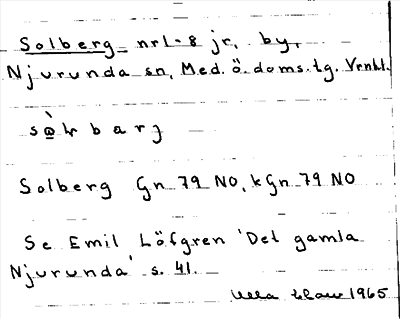 Solberg nr 1-8 jr, by,
Njurunda sn, Med. ö. doms. tg. Vrnl.
barj
Solberg Gn 79 NO, kGn 79 NO
Se Emil Löfgren 'Det gamla
Njurunda' s. 41.
Ulla 1965